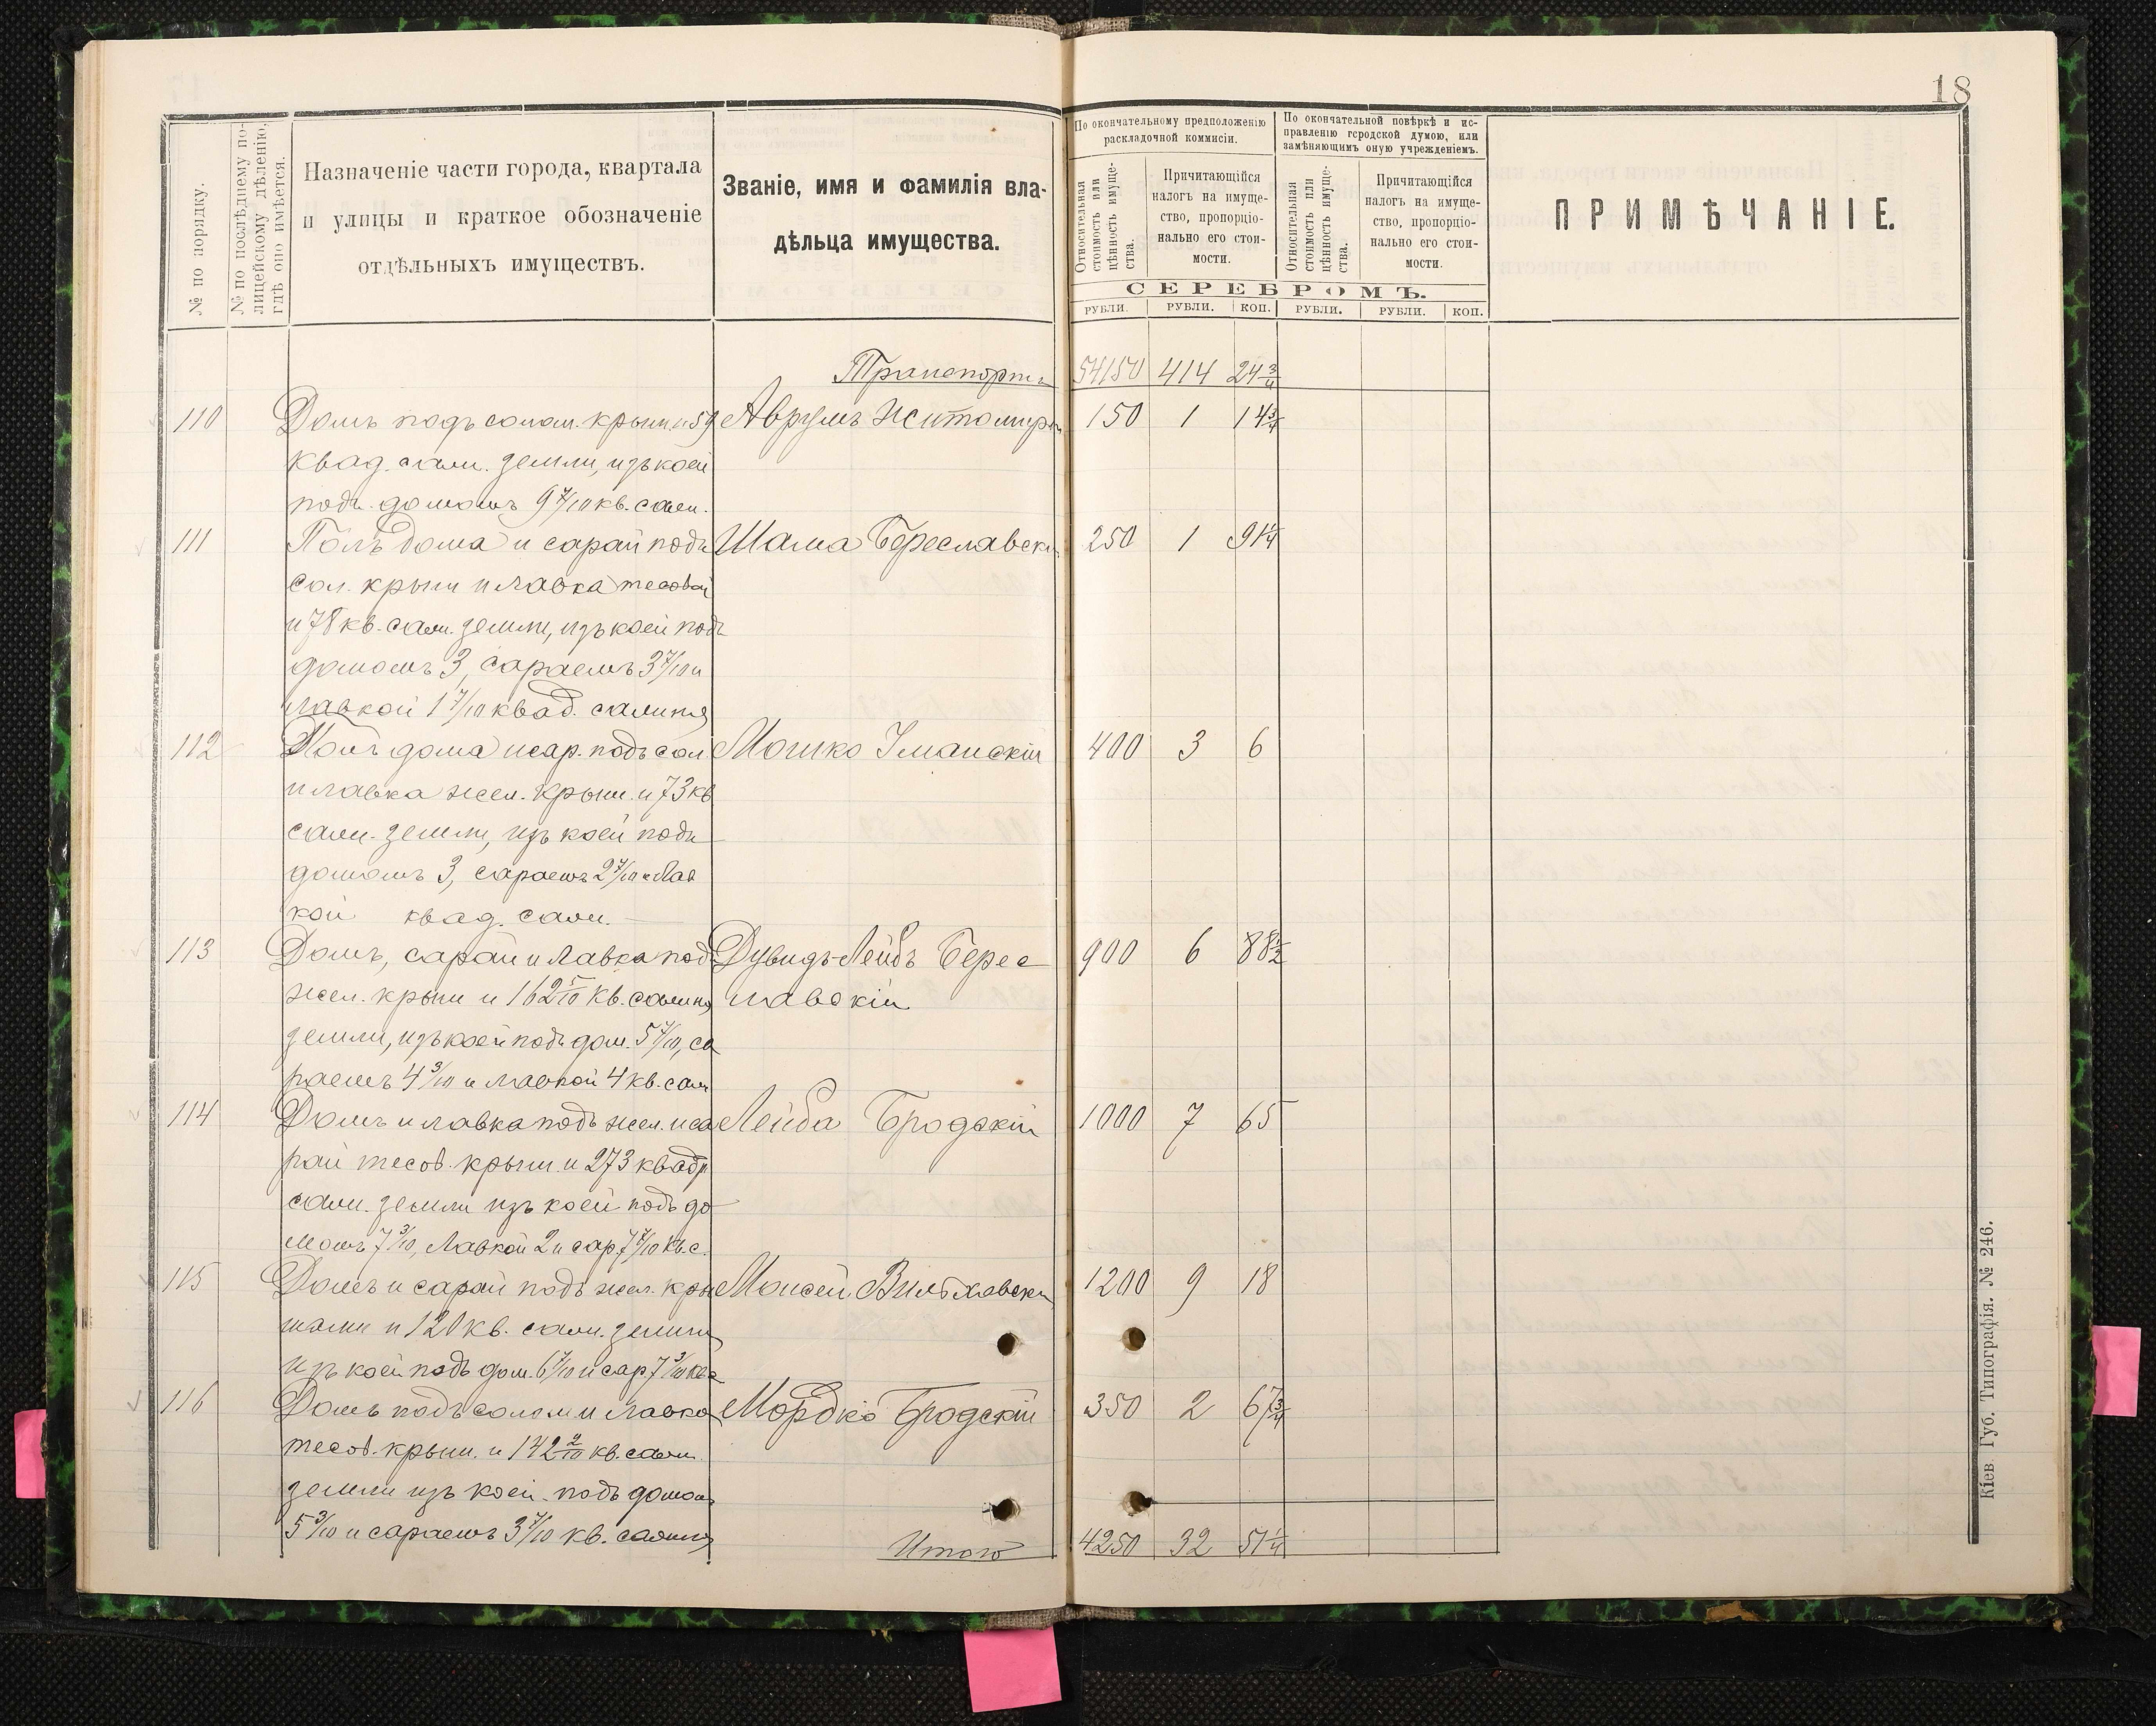 18
№ по порядку.
№ по послѣднему по-
лицейскому дѣленію,
гдѣ оно имѣется.
Назначеніе части города, квартала
и улицы и краткое обозначеніе
отдѣльныхъ имуществъ.
Званіе, имя и фамилія вла-
дѣльца имущества.
По окончательному предположенію
раскладочной коммисіи.
По окончательной повѣркѣ и ис-
правленію городской думою, или
замѣняющимъ оную учрежденіемъ.
Относительная
стоимость или
цѣнность имуще-
ства.
Причитающійся
налогъ на имуще-
ство, пропорціо-
нально его стои-
мости.
Относительная
стоимость или
цѣнность имуще-
ства.
Причитающійся
налогъ на имуще-
ство, пропорціо-
нально его стои-
мости.
ПРИМѢЧАНІЕ.
СЕРЕБРОМЪ.
РУБЛИ. РУБЛИ. КОП. РУБЛИ. РУБЛИ. КОП.
Транспортъ 54150 414 24 3/4
110 Домъ подъ солом. крыш. и 59 Аврумъ Житомирск 150 1 14 3/4
квад. саж. земли, изъ коей
подъ домомъ 9 7/10 кв. саж.
111 Полъ дома и сарай подъ Шама Береславскі 250 1 91 1/4
сол. крыш и лавка тесовой
и 78 кв. саж. земли, изъ коей подъ
домомъ 3, сараемъ 3 7/10 и
лавкой 1 7/10 квад. сажня
112 Полъ дома и сар. подъ сол Мошко Уманскій 400 3 6
и лавка жел. крыш. и 73 кв
саж. земли, изъ коей подъ
домомъ 3, сараемъ 2 7/10 и лав
кой квад. саж.
113 Домъ, сарай и лавка подъ Дувидъ-Лейбъ Берес 900 6 88 1/2
жел. крыш и 162 5/10 кв. сажня лавскій
земли, изъ коей подъ дом. 5 7/10, са
раемъ 4 3/10 и лавкой 4 кв. саж
114 Домъ и лавка подъ жел. и са Лейба Бродскій 1000 7 65
рай тесов. крыш. и 273 квадр
саж. земли изъ коей подъ до
момъ 7 3/10, лавкой 2 и сар. 7 7/10 кв. с.
115 Домъ и сарай подъ жел. кры Моисей 1200 9 18
шами и 120 кв. саж. земли
изъ коей подъ дом. 6 7/10 и сар 7 3/10 кв с
116 Домъ подъ солом и лавка Мордко Бродскій 350 2 67 3/4
тесов. крыш. и 142 2/10 кв. саж.
земли изъ коей подъ домомъ
5 3/10 и сараемъ 3 7/10 кв. сажня
Итого 4250 32 51 1/4
Кіев. Губ. Типографія. № 246.